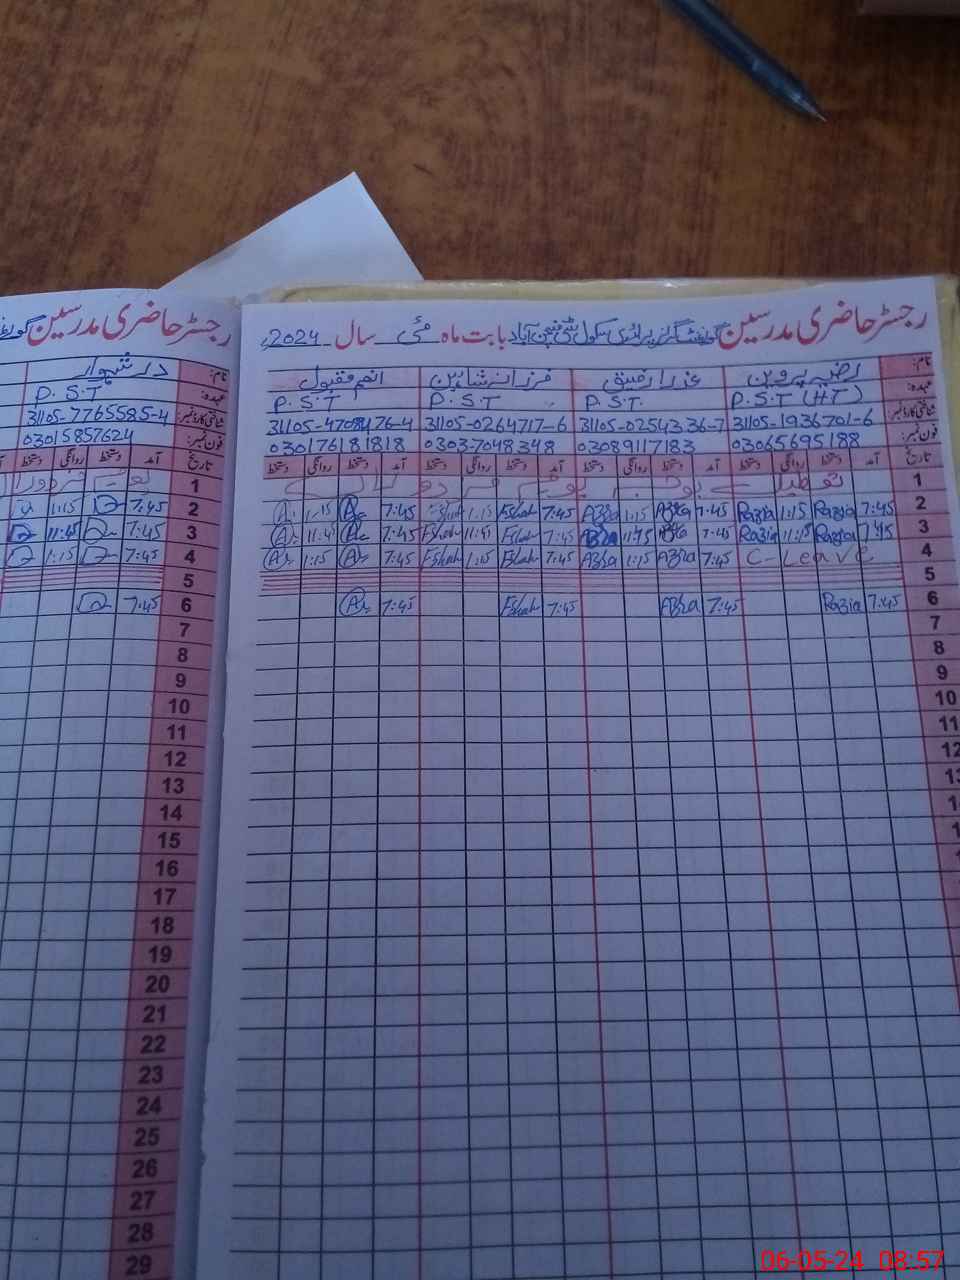 رجسٹر حاضری مدرسین گورنمنٹ گرلز پرائمری سکول بابت ماہ مئی سال 2024ء
نام: رضیہ پروین عذرا رفیق فرزانہ شاہین انعم مقبول
عہدہ: P.S.T (HT) P.S.T. P.S.T P.S.T
شناختی کارڈ نمبر: 31105-1936701-6 31105-0254336-7 31105-0264717-6
فون نمبر: 03065695188 03089117183 03037048348 030176181818
تاریخ آمد دستخط روانگی دستخط آمد دستخط روانگی دستخط آمد دستخط روانگی دستخط آمد دستخط روانگی دستخط
1 تعطیل
2 7:45 Razia 1:15 Razia 7:45 Azra 1:15 Azra 7:45 1:15 7:45 1:15
3 7:45 Razia Razia 7:45 7:45 11:45 7:45 11:45
4 C-Leave 7:45 Azra 1:15 Azra 7:45 1:15 7:45 1:15
5
6 7:45 Razia 7:45 Azra 7:45 7:45
7
8
9
10
11
12
رجسٹر حاضری مدرسین
نام: در شہوار
عہدہ: P.S.T
شناختی کارڈ نمبر: 31105-7765585-4
فون نمبر: 03015857624
تاریخ آمد دستخط روانگی دستخط
1
2 7:45 1:15
3 7:45 11:45
4 7:45 1:15
5
6 7:45
7
8
9
10
11
12
13
14
15
16
17
18
19
20
21
22
23
24
25
26
27
28
29
06-05-24 08:57